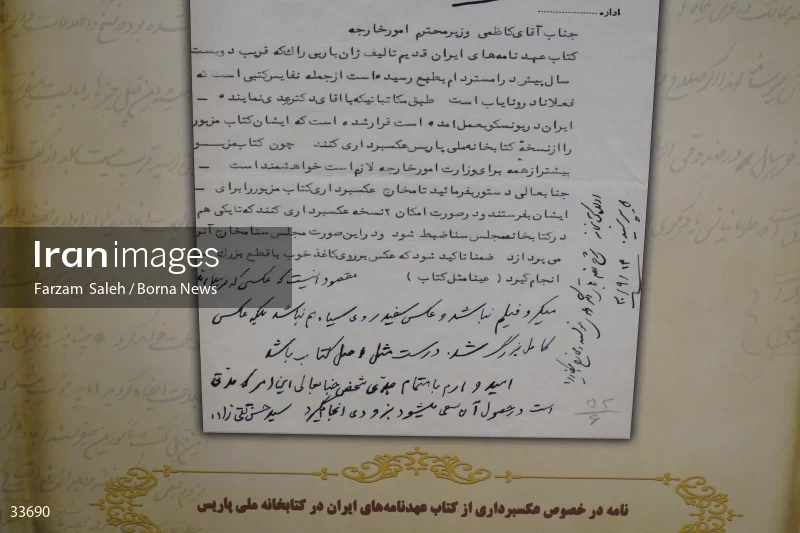 اداره
جناب آقای کاظمی وزیر محترم امور خارجه
کتاب عهد نامه های ایران قدیم تالیف ژان باربی راك که قریب دویست
سال پیش در امستردام بطبع رسیده است از جمله نفایس کتبی است که
فعلا نادر و نایاب است طبق مکاتباتیکه با اقای دکتر عدی نماینده
ایران در یونسکو بعمل امده است قرار شده است که ایشان کتاب مزبور
را از نسخه کتابخانه ملی پاریس عکسبرداری کنند چون کتاب مزبور
بیشتر از همه برای وزارت امور خارجه لازم است خواهشمند است
جنابعالی دستور فرمائید تا مخارج عکسبرداری کتاب مزبور را برای
ایشان بفرستند و در صورت امکان ۲ نسخه عکسبرداری کنند که تا یکی هم
در کتابخانه مجلس سنا ضبط شود و در این صورت مجلس سنا مخارج آنرا
می پردازد ضمنا تاکید شود که عکس بر روی کاغذ خوب با قطع بزرگ
انجام گیرد ( عینا مثل کتاب ) مقصود اینست که عکسی که
میکروفیلم نباشد و عکس سفید روی سیاه هم نباشد بلکه عکس
کامل بزرگ شده درست مثل اصل کتاب باشد
امید وارم با اهتمام شخص جنابعالی این امر که
است در حصول آن سعی میشود بزودی انجام گیرد سید حسن تقی زاده
۳۰/۹/۱۴
۵۲
۶
Iranimages
Farzam Saleh / Borna News
33690
نامه در خصوص عکسبرداری از کتاب عهدنامه‌های ایران در کتابخانه ملی پاریس